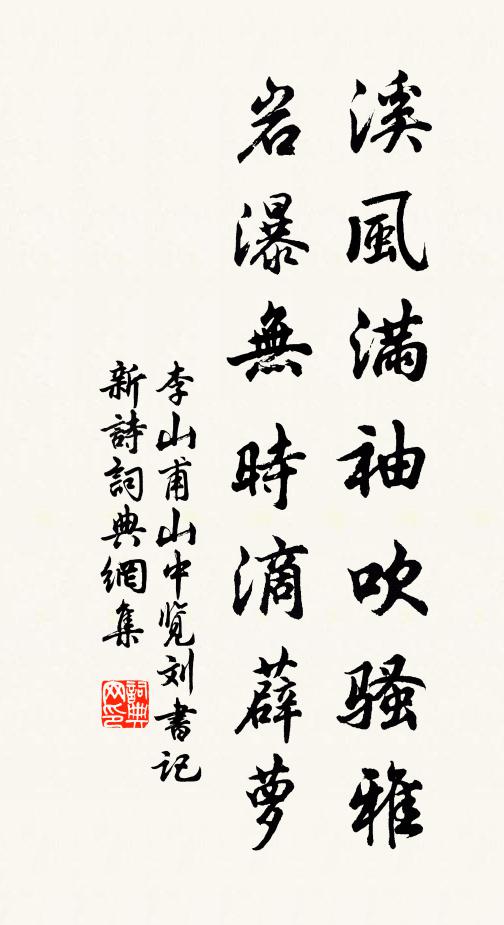 溪風滿袖吹騷雅
岩瀑無時滴薜萝
李山甫山中览刘書记
新詩詞典網集
詞典网印